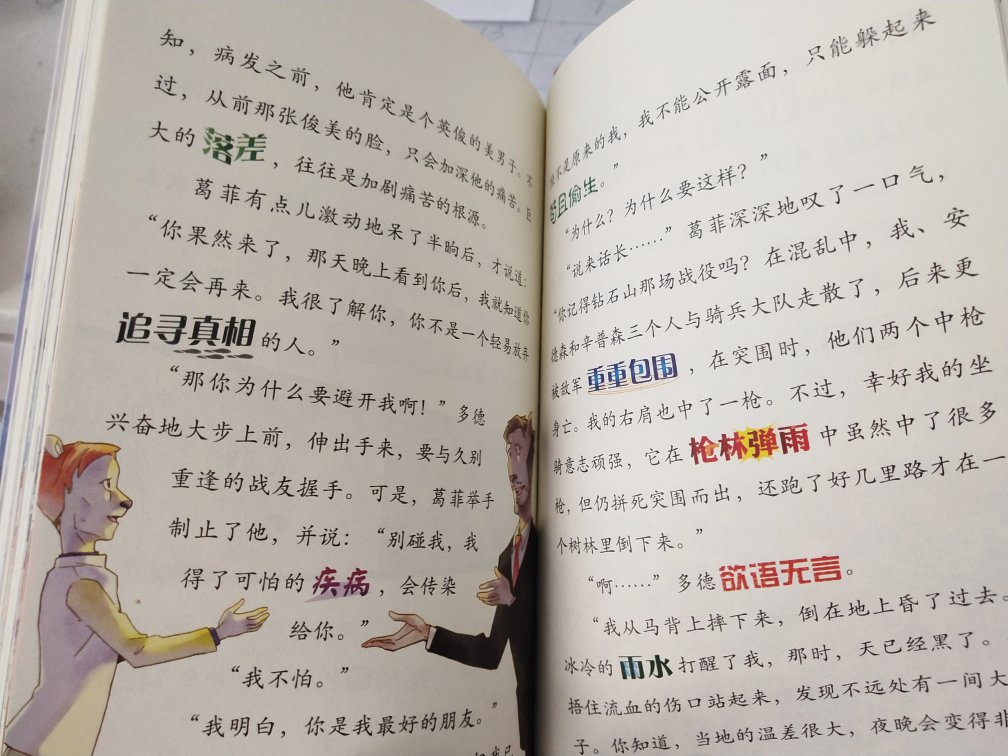 知，病发之前，他肯定是个英俊的美男子。不
过，从前那张俊美的脸，只会加深他的痛苦。巨
大的落差，往往是加剧痛苦的根源。
葛菲有点儿激动地呆了半晌后，才说道：
“你果然来了，那天晚上看到你后，我就知道你
一定会再来。我很了解你，你不是一个轻易放弃
追寻真相的人。”
“那你为什么要避开我啊！”多德
兴奋地大步上前，伸出手来，要与久别
重逢的战友握手。可是，葛菲举手
制止了他，并说：“别碰我，我
得了可怕的疾病，会传染
给你。”
“我不怕。”
“我明白，你是我最好的朋友。”
不是原来的我，我不能公开露面，只能躲起来
苟且偷生。”
“为什么？为什么要这样？”
“说来话长……”葛菲深深地叹了一口气，
“你记得钻石山那场战役吗？在混乱中，我、安
德森和辛普森三个人与骑兵大队走散了，后来更
被敌军重重包围，在突围时，他们两个中枪
身亡。我的右肩也中了一枪。不过，幸好我的坐
骑意志顽强，它在枪林弹雨中虽然中了很多
枪，但仍拼死突围而出，还跑了好几里路才在一
个树林里倒下来。”
“啊……”多德欲语无言。
“我从马背上摔下来，倒在地上昏了过去。
冰冷的雨水打醒了我，那时，天已经黑了。
捂住流血的伤口站起来，发现不远处有一间大
子。你知道，当地的温差很大，夜晚会变得非